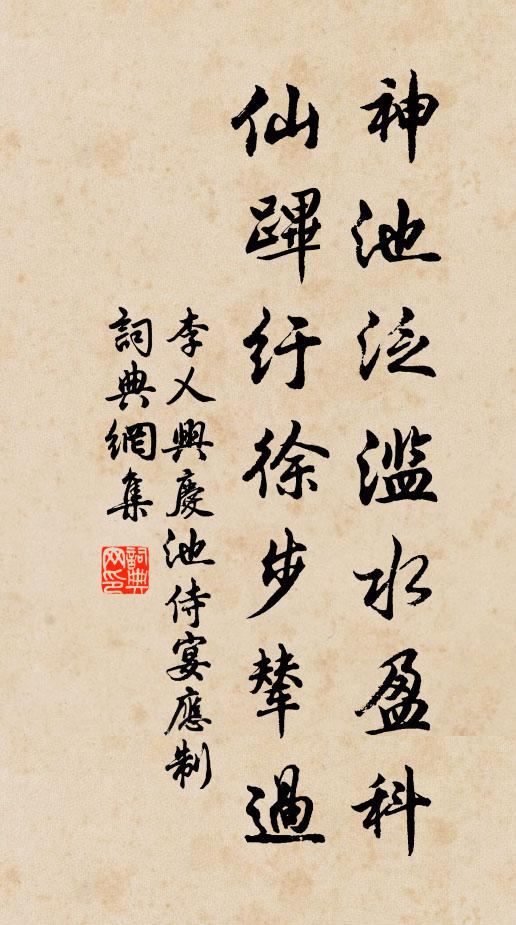 神池泛滥水盈科
仙蹕紆徐步輦過
李乂興慶池侍宴應制
詞典網集
詞典网印